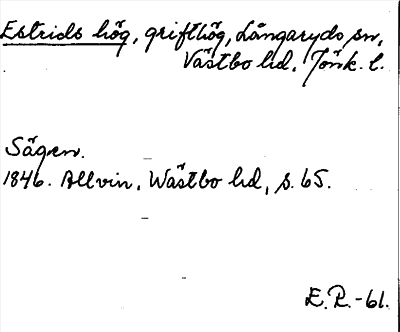 Estrids hög, grifthög, Långaryds sn,
Västbo hd, Jönk. l.
Sägen.
1846. Allvin, Wästbo hd, s. 65.
E. R. -61.